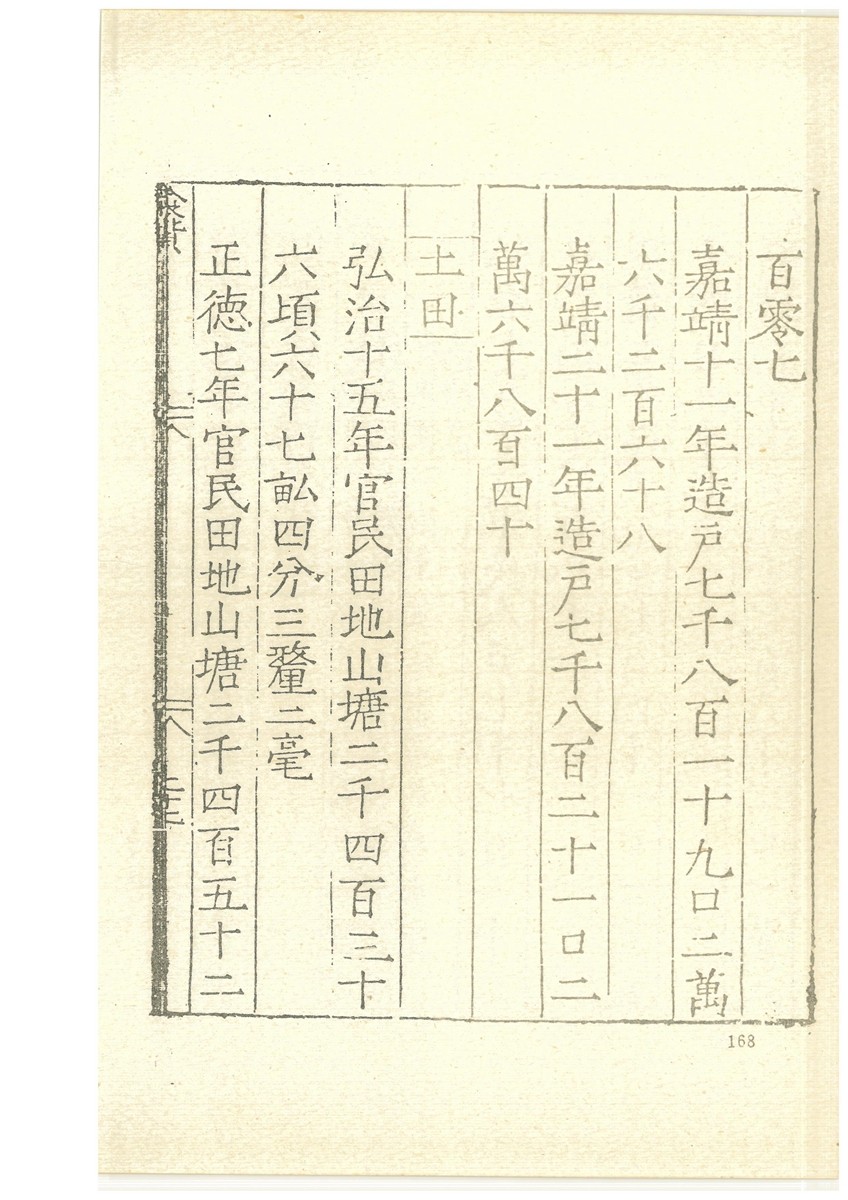 百零七
嘉靖十一年造戸七千八百一十九口二萬
六千二百六十八
嘉靖二十一年造戸七千八百二十一口二
萬六千八百四十
土田
弘治十五年官民田地山塘二千四百三十
六頃六十七畝四分三釐二毫
正德七年官民田地山塘二千四百五十二
食貨
168